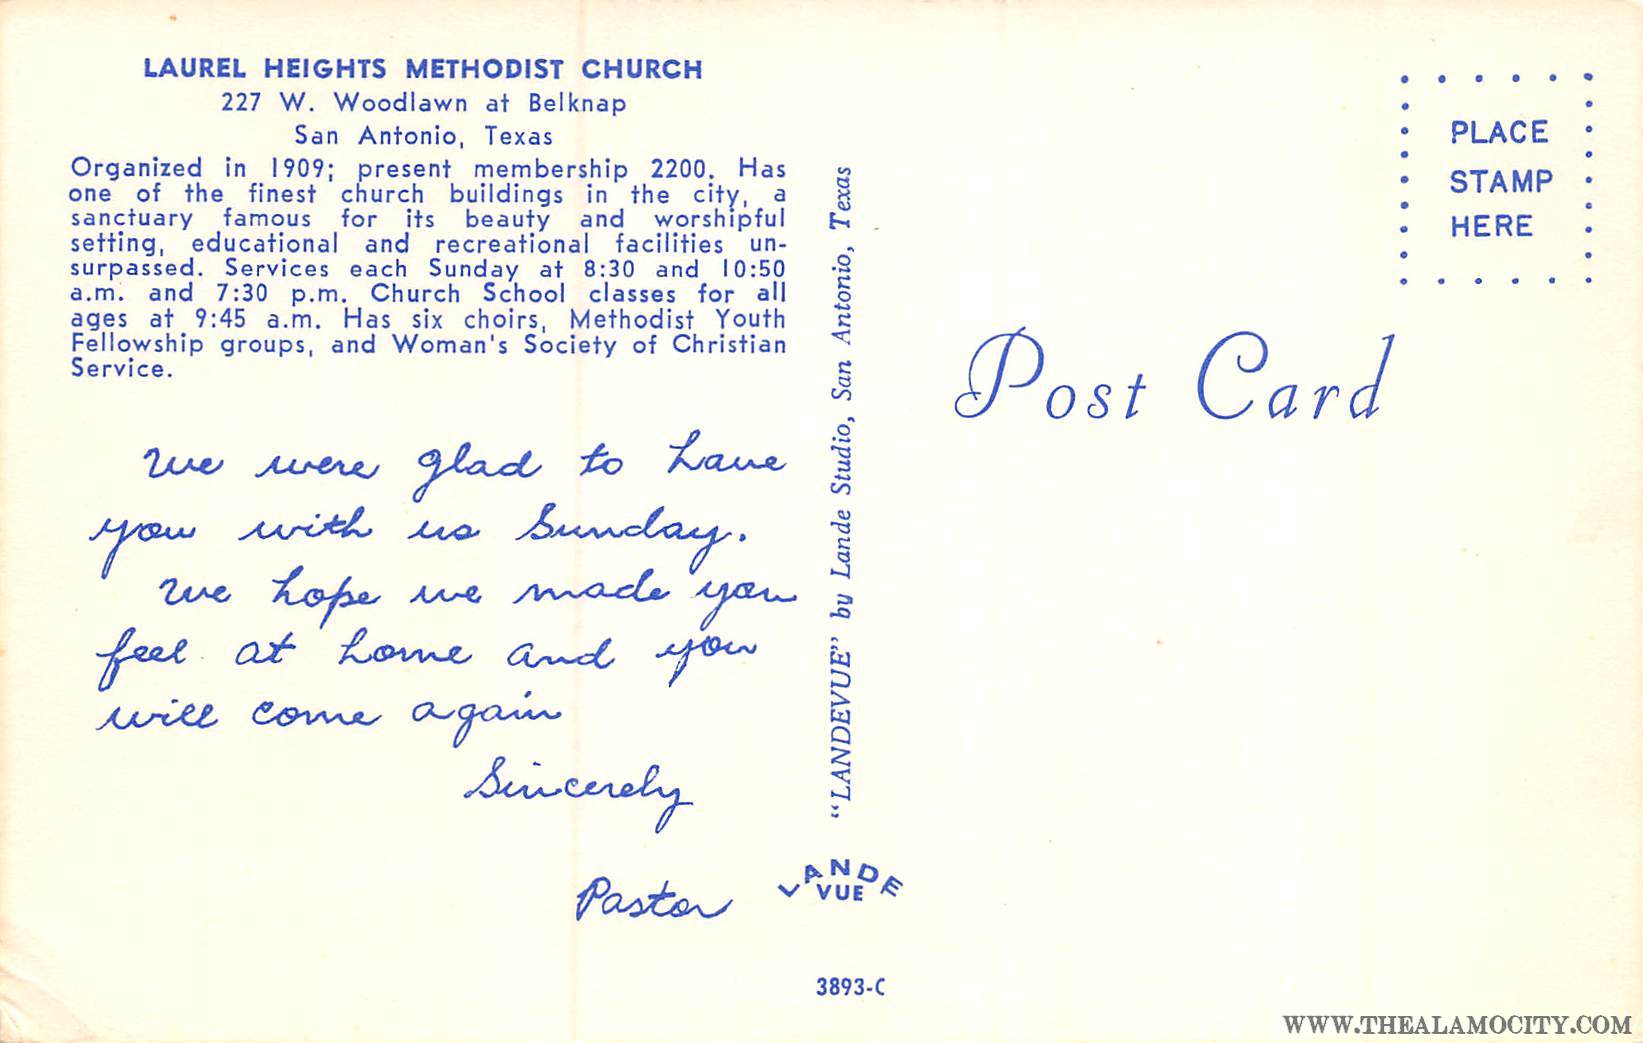 LAUREL HEIGHTS METHODIST CHURCH
227 W. Woodlawn at Belknap
San Antonio, Texas
Organized in 1909; present membership 2200. Has
one of the finest church buildings in the city, a
sanctuary famous for its beauty and worshipful
setting, educational and recreational facilities un-
surpassed. Services each Sunday at 8:30 and 10:50
a.m. and 7:30 p.m. Church School classes for all
ages at 9:45 a.m. Has six choirs, Methodist Youth
Fellowship groups, and Woman's Society of Christian
Service.
We were glad to have
you with us Sunday.
We hope we made you
feel at home and you
will come again
Sincerely
Pastor
"LANDEVUE" by Lande Studio, San Antonio, Texas
LANDE
VUE
3893-C
PLACE
STAMP
HERE
Post Card
WWW.THEALAMOCITY.COM